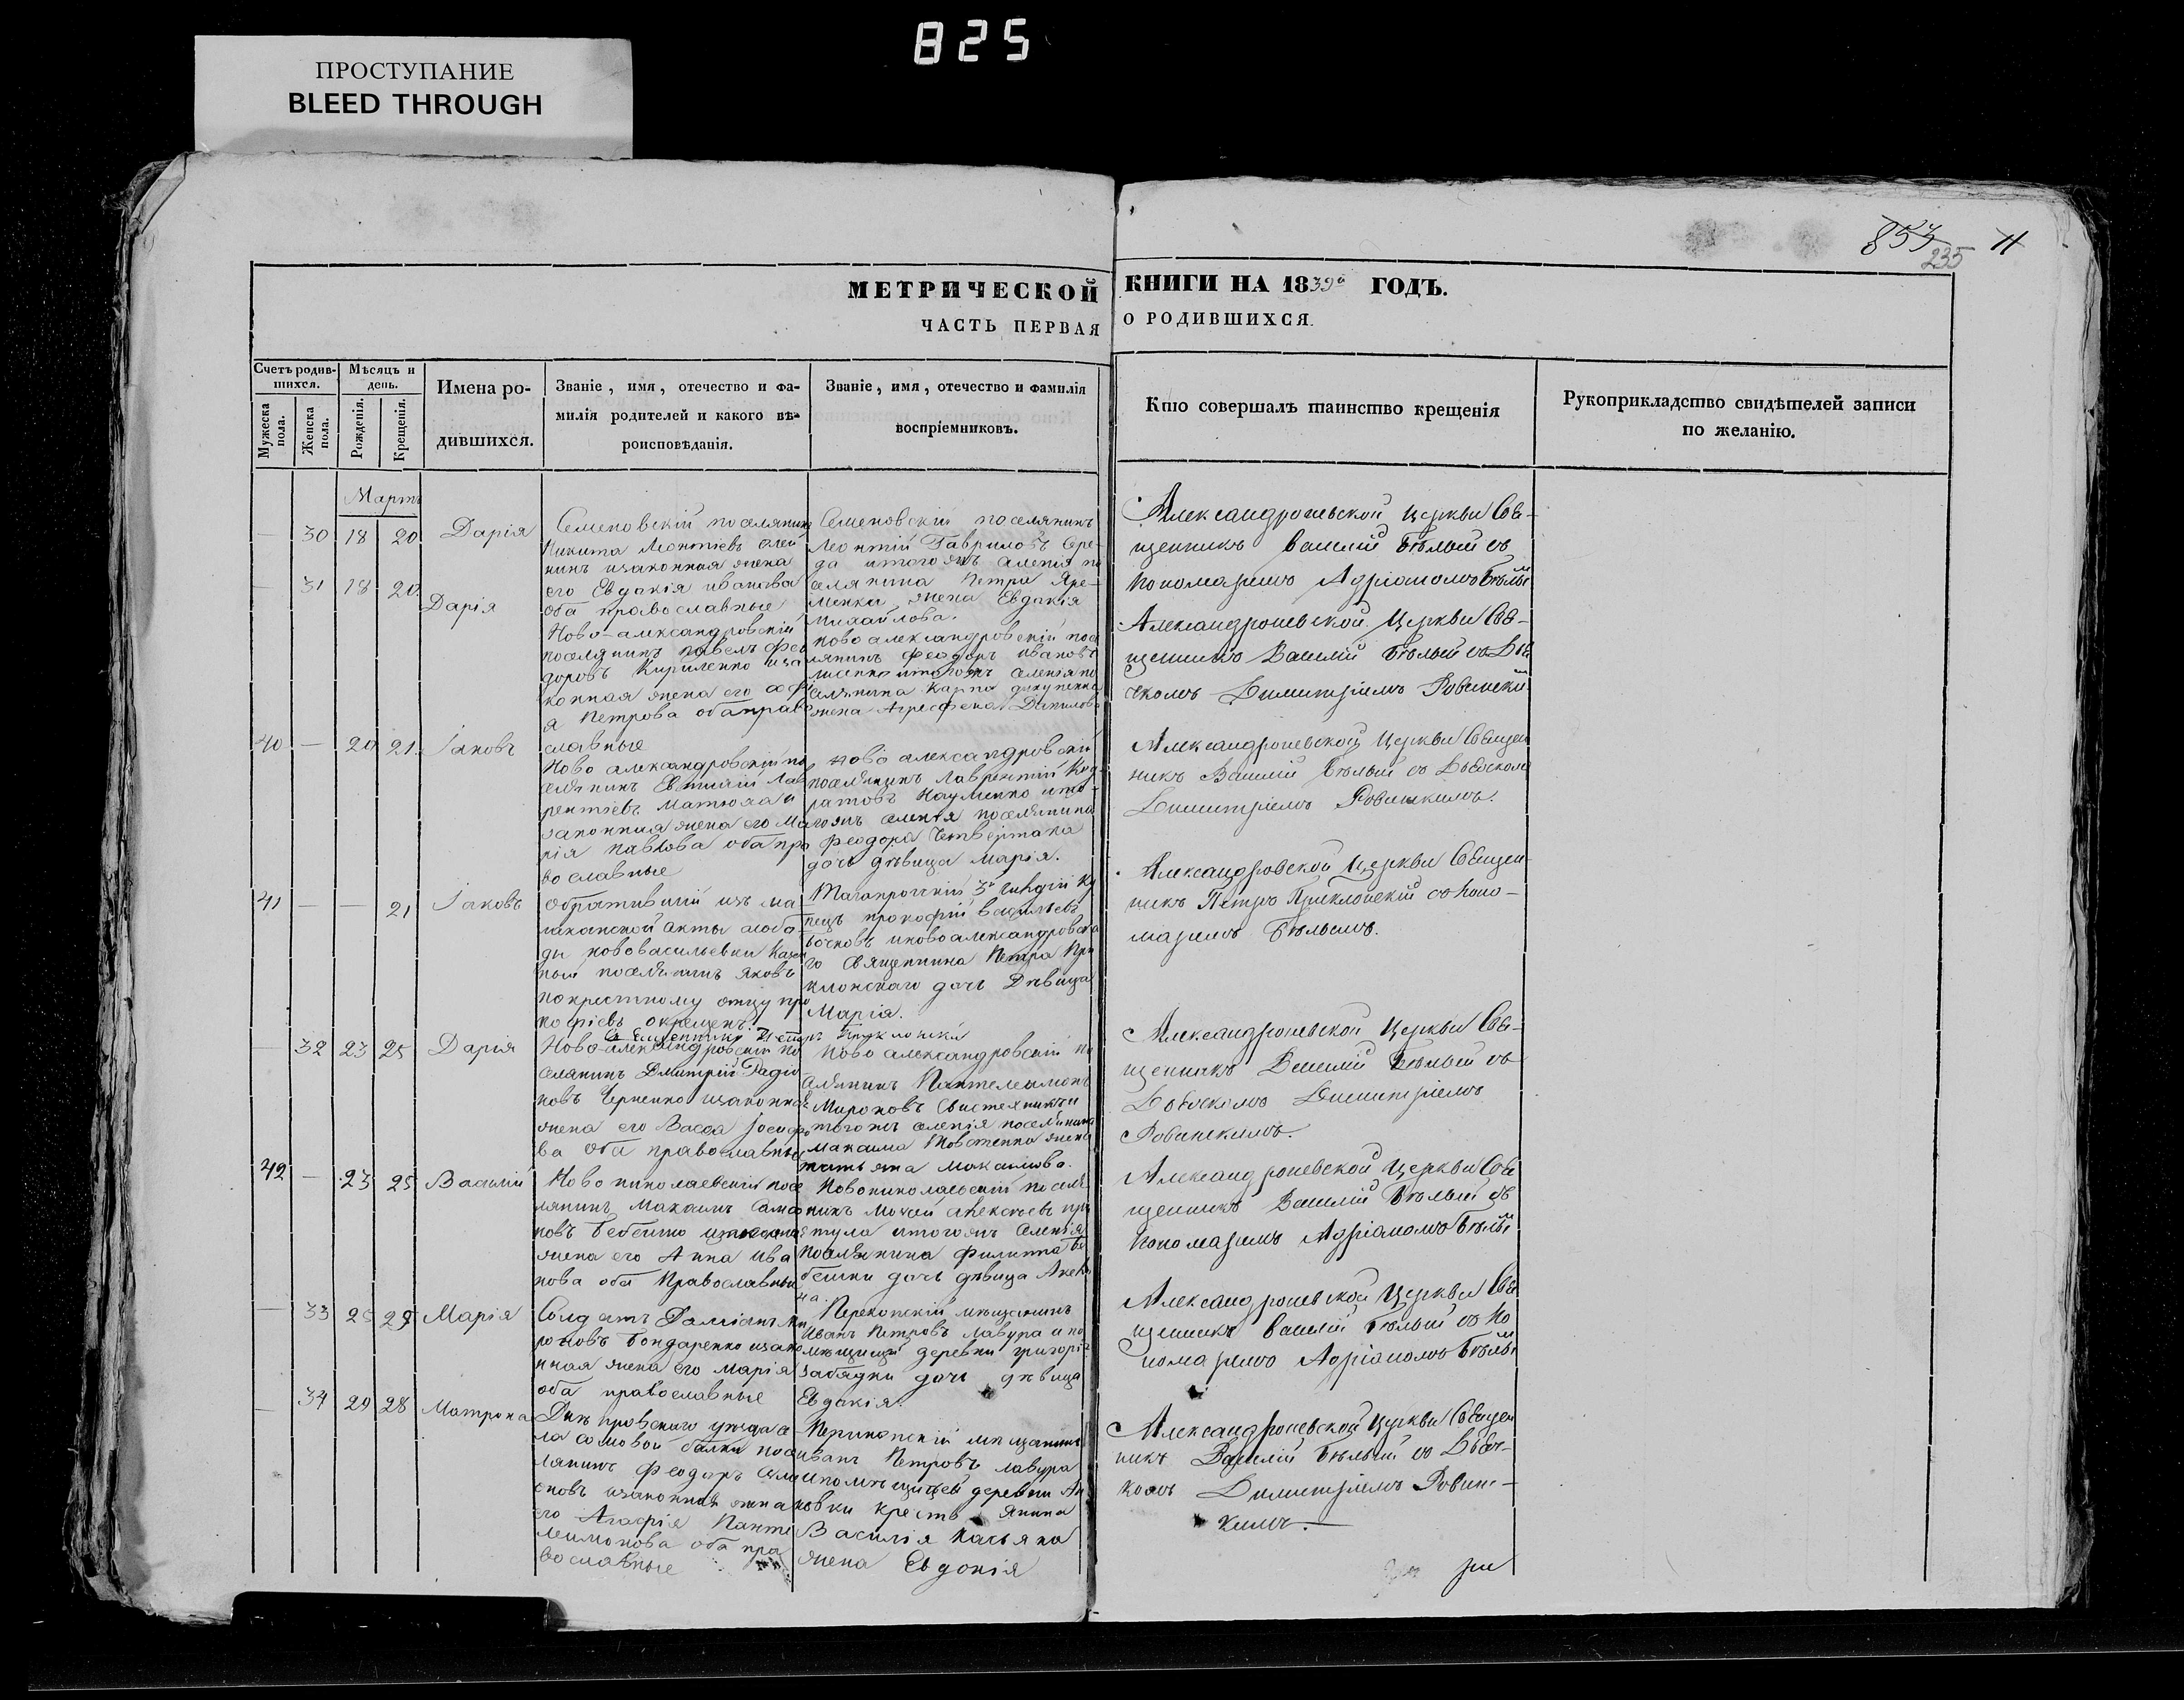 825
ПРОСТУПАНИЕ
BLEED THROUGH
853
235
11
МЕТРИЧЕСКОЙ КНИГИ НА 1839й ГОДЪ.
ЧАСТЬ ПЕРВАЯ О РОДИВШИХСЯ.
Счетъ родившихся.
Мужеска пола.
Женска пола.
Мѣсяцъ и день.
Рожденія.
Крещенія.
Имена родившихся.
Званіе, имя, отечество и фамилія родителей и какого вѣроисповѣданія.
Званіе, имя, отечество и фамилія воспріемниковъ.
Кто совершалъ таинство крещенія
Рукоприкладство свидѣтелей записи по желанію.
Мартъ
— 30 18 20 Дарія
Семеновскій поселянинъ
Никита Леонтіевъ
законная жена
его Евдакія иванова
оба православные
Семеновскій поселянинъ
Леонтій Гавриловъ Сере-
да итогожъ селенія по
селянина Петра Яре-
менка жена Евдакія
михайлова.
Александроневской церкви Свя-
щенникъ Василій Бѣлый съ
пономаремъ Адріаномъ Бѣлымъ
— 31 18 20 Дарія
Ново-александровскій
поселянинъ павелъ фео
доровъ Кириленко иза
конная жена его софі
я Петрова оба право
славные
ново александровскій посе
лянинъ феодоръ ивановъ
итогожъ селенія по
селянина Карпа
жена Агрефена Данилова
Александроневской Церкви Свя-
щенникъ Василій Бѣлый съ Дья
чкомъ Димитріемъ Ровински
40 — 20 21 Іаковъ
Ново александровскій по
селянинъ Евтихій Лав
рентіевъ
законная жена его Ма
рія павлова оба пра
во славные
ново александровскій
поселянинъ Лаврентій Код
ратовъ Науменко ито-
гожъ селенія поселянина
Феодора Четвертака
дочь дѣвица Марія.
Александроневской Церкви Священ
никъ Василій Бѣлый съ Дьячкомъ
Димитріемъ Ровинскимъ.
41 — — 21 Іаковъ
Обратившій изъ ма
локанской секты слобо
ды нововасильевки казен
ный поселянинъ яковъ
покрестному отцу про
кофіевъ окрещенъ.
Священникъ Петръ Приклонскій
Таганрогскій 3й гильдій ку
пецъ прокофій васильевъ
иновоалександровска
го священника Петра При
клонскаго дочь Дѣвица
Марія.
Александровской Церкви Священ
никъ Петръ Приклонскій съ поно-
маремъ Бѣлымъ.
— 32 23 25 Дарія
Ново-александровскій по
селянинъ Дмитрій Радіо
новъ Черненко изаконная
жена его Васса Іосифо
ва оба православные
Ново александровскій по
селянинъ Пантелеимонъ
Мироновъ
тогожъ селенія поселянина
максима Товстенка жена
татьяна максимова.
Александроневской Церкви Свя-
щенникъ Василій Бѣлый съ
Дьячкомъ Димитріемъ
Ровинскимъ.
42 — 23 25 Василій
Ново николаевскій посе
лянинъ Максимъ
новъ Бебешко
жена его Анна ива
нова оба Православные
Новониколаевскій поселя
нинъ Мочей алексѣевъ при
тула итогожъ селенія
поселянина филиппа Бе
бешки дочь дѣвица
Александроневской Церкви Свя
щенникъ Василій Бѣлый съ
пономаремъ Адріаномъ Бѣлымъ
— 33 25 29 Марія
Солдатъ Даміанъ Ми
роновъ Бондаренко изако
нная жена его марія
оба православные
Перекопскій мѣщанинъ
Иванъ Петровъ Лавура и по
мѣщицей деревни григорія
дочь дѣвица
Евдакія.
Александроневской Церкви Свя
щенникъ Василій Бѣлый съ По
номаремъ Адріаномъ Бѣлымъ
— 34 29 28 Матрона
Днѣпровскаго уѣзда се
ла сомовой балки посе
лянинъ Феодоръ
оновъ изаконная жена
его Агафія Панте
леимонова оба пра
вославные
Перекопскій мѣщанинъ
иванъ Петровъ лавура
ипомѣщицей деревни Ан
новки крестьянина
Василія Касьяна
жена Евдокія
Александроневской Церкви Священ
никъ Василій Бѣлый съ Дьяч-
комъ Димитріемъ Ровинс-
кимъ.